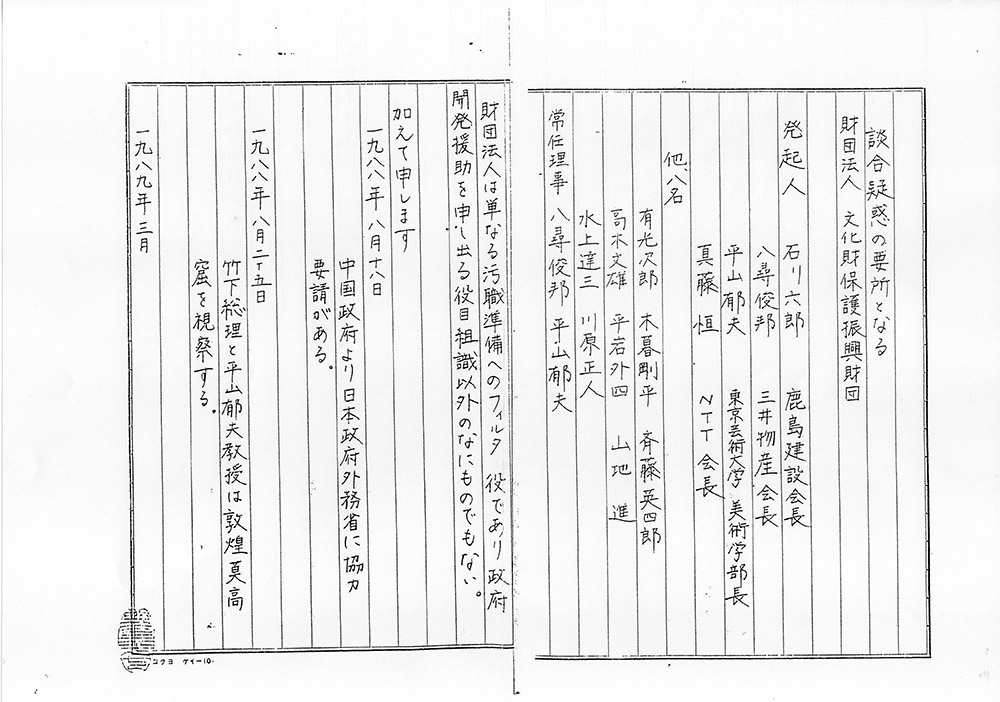 談合疑惑の要所となる
財団法人 文化財保護振興財団
発起人 石川六郎 鹿島建設会長
八尋俊邦 三井物産会長
平山郁夫 東京芸術大学 美術学部長
真藤 恒 NTT会長
他、八名
有光次郎 木暮剛平 斉藤英四郎
高木文雄 平岩外四 山地 進
水上達三 川原正人
常任理事 八尋俊邦 平山郁夫
財団法人は単なる汚職準備へのフィルタ 役であり政府
開発援助を申し出る役目組識以外のなにものでもない。
加えて申します
一九八八年 八月十八日
中国政府より日本政府外務省に協力
要請がある。
一九八八年 八月二十五日
竹下総理と平山郁夫教授は敦煌莫高
窟を視察する。
一九八九年 三月
コクヨ ケイ-10